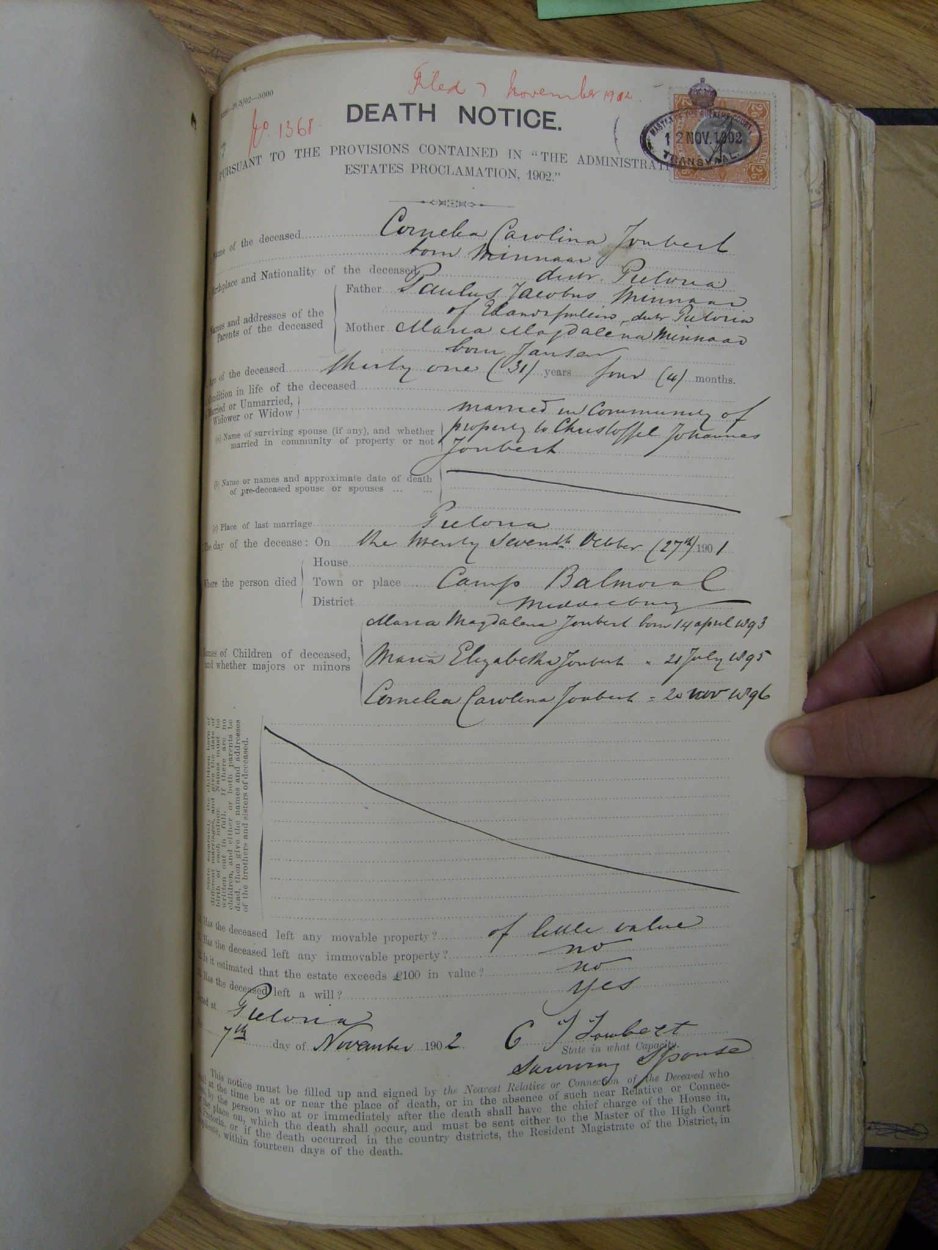 Filed 7 November 1902
No. 1368
DEATH NOTICE.
MASTER OF THE SUPREME COURT
12 NOV. 1902
TRANSVAAL
PURSUANT TO THE PROVISIONS CONTAINED IN "THE ADMINISTRATI
ESTATES PROCLAMATION, 1902."
Name of the deceased Cornelia Carolina Joubert
born Minnaar
Birthplace and Nationality of the deceased distr. Pretoria
Names and addresses of the Parents of the deceased
Father Paulus Jacobus Minnaar
of distr Pretoria
Mother Maria Magdalena Minnaar
born Jansen
Age of the deceased thirty one (31) years four (4) months.
Condition in life of the deceased
Married or Unmarried,
Widower or Widow
married in Community of
(a) Name of surviving spouse (if any), and whether
married in community of property or not
property to Christoffel Johannes
Joubert
(b) Name or names and approximate date of death
of pre-deceased spouse or spouses ... ...
(c) Place of last marriage Pretoria
The day of the decease: On the twenty seventh October (27th) 1901
Where the person died
House
Town or place Camp Balmoral
District Middelburg
Names of Children of deceased,
and whether majors or minors
Maria Magdalena Joubert born 14 april 1893
Maria Elizabetha Joubert " 21 July 1895
Cornelia Carolina Joubert " 20 nov 1896
State separately the children born of
different marriages, and give the date of
birth of each minor. Names must be
written out in full. If there are no
children, and either or both parents be
dead, then give the names and addresses
of the brothers and sisters of deceased.
Has the deceased left any movable property? of little value
Has the deceased left any immovable property? no
Is it estimated that the estate exceeds £100 in value? no
Has the deceased left a will? yes
Dated at Pretoria
7th day of November 1902
C J Joubert
State in what Capacity.
Surviving Spouse
This notice must be filled up and signed by the Nearest Relative or Connection of the Deceased who
at the time be at or near the place of death, or in the absence of such near Relative or Connec-
by the person who at or immediately after the death shall have the chief charge of the House in,
place on, which the death shall occur, and must be sent either to the Master of the High Court
Pretoria, or if the death occurred in the country districts, the Resident Magistrate of the District, in
within fourteen days of the death.